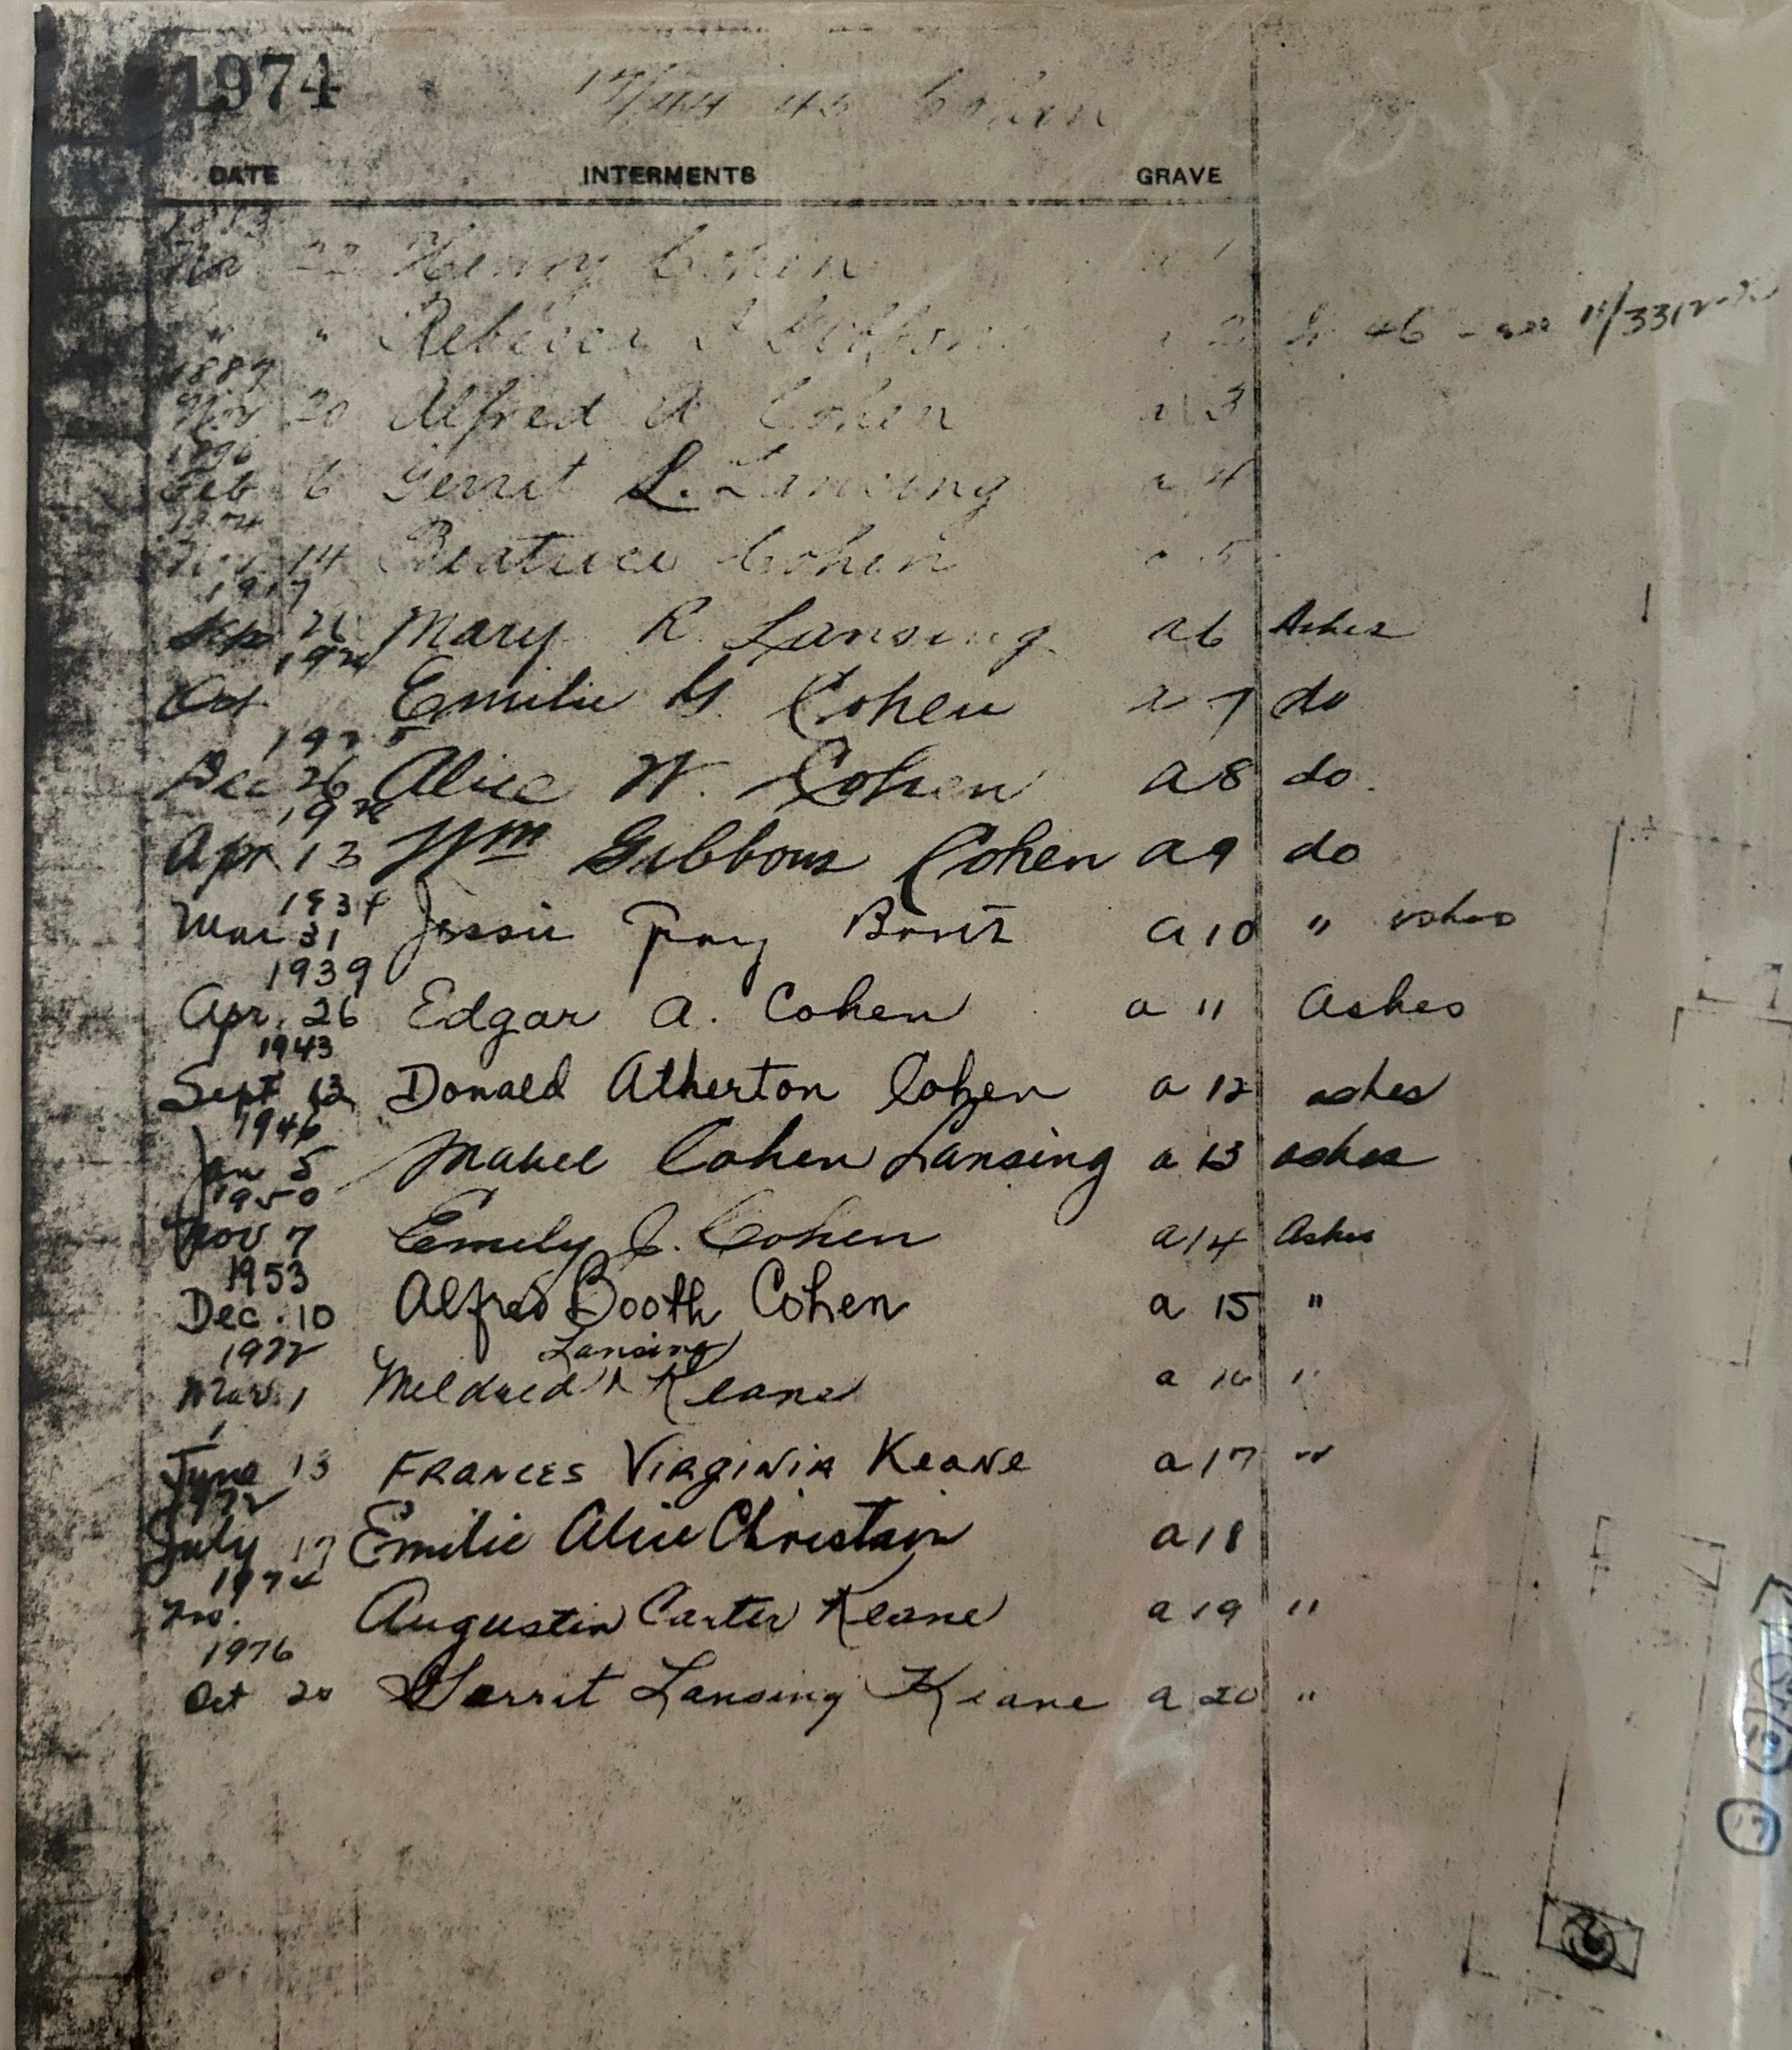 1974
Cohen
DATE INTERMENTS GRAVE
22 Henry Cohen a 1
" " Rebecca 46 - see
1887
Nov 20 Alfred A Cohen a 3
Feb 6 Gerrit L. Lansing a 4
14 Beatrice Cohen a 5
1917
Sep 26 Mary R. Lansing a6 Ashes
Oct Emilie G. Cohen a 7 do
1925
Dec 26 Alice W. Cohen a8 do.
Apr 13 Wm Gibbons Cohen a9 do
Mar 31 Jessie a 10 " ashes
1939
Apr. 26 Edgar A. Cohen a 11 Ashes
1943
Sept 13 Donald Atherton Cohen a 12 ashes
1946
Jan 5 Mabel Cohen Lansing a 13 ashes
1950
Nov 7 Emily J. Cohen a14 Ashes
1953
Dec. 10 Alfred Booth Cohen a 15 "
1972 Lansing
Mar. 1 Mildred ^ Keane a 16 "
June 13 FRANCES VIRGINIA KEANE a 17 "
1972
July 17 Emilie Alice Christain a 18
1974
Augustin Carter Keane a 19 "
1976
Oct 20 Gerrit Lansing Keane a 20 "